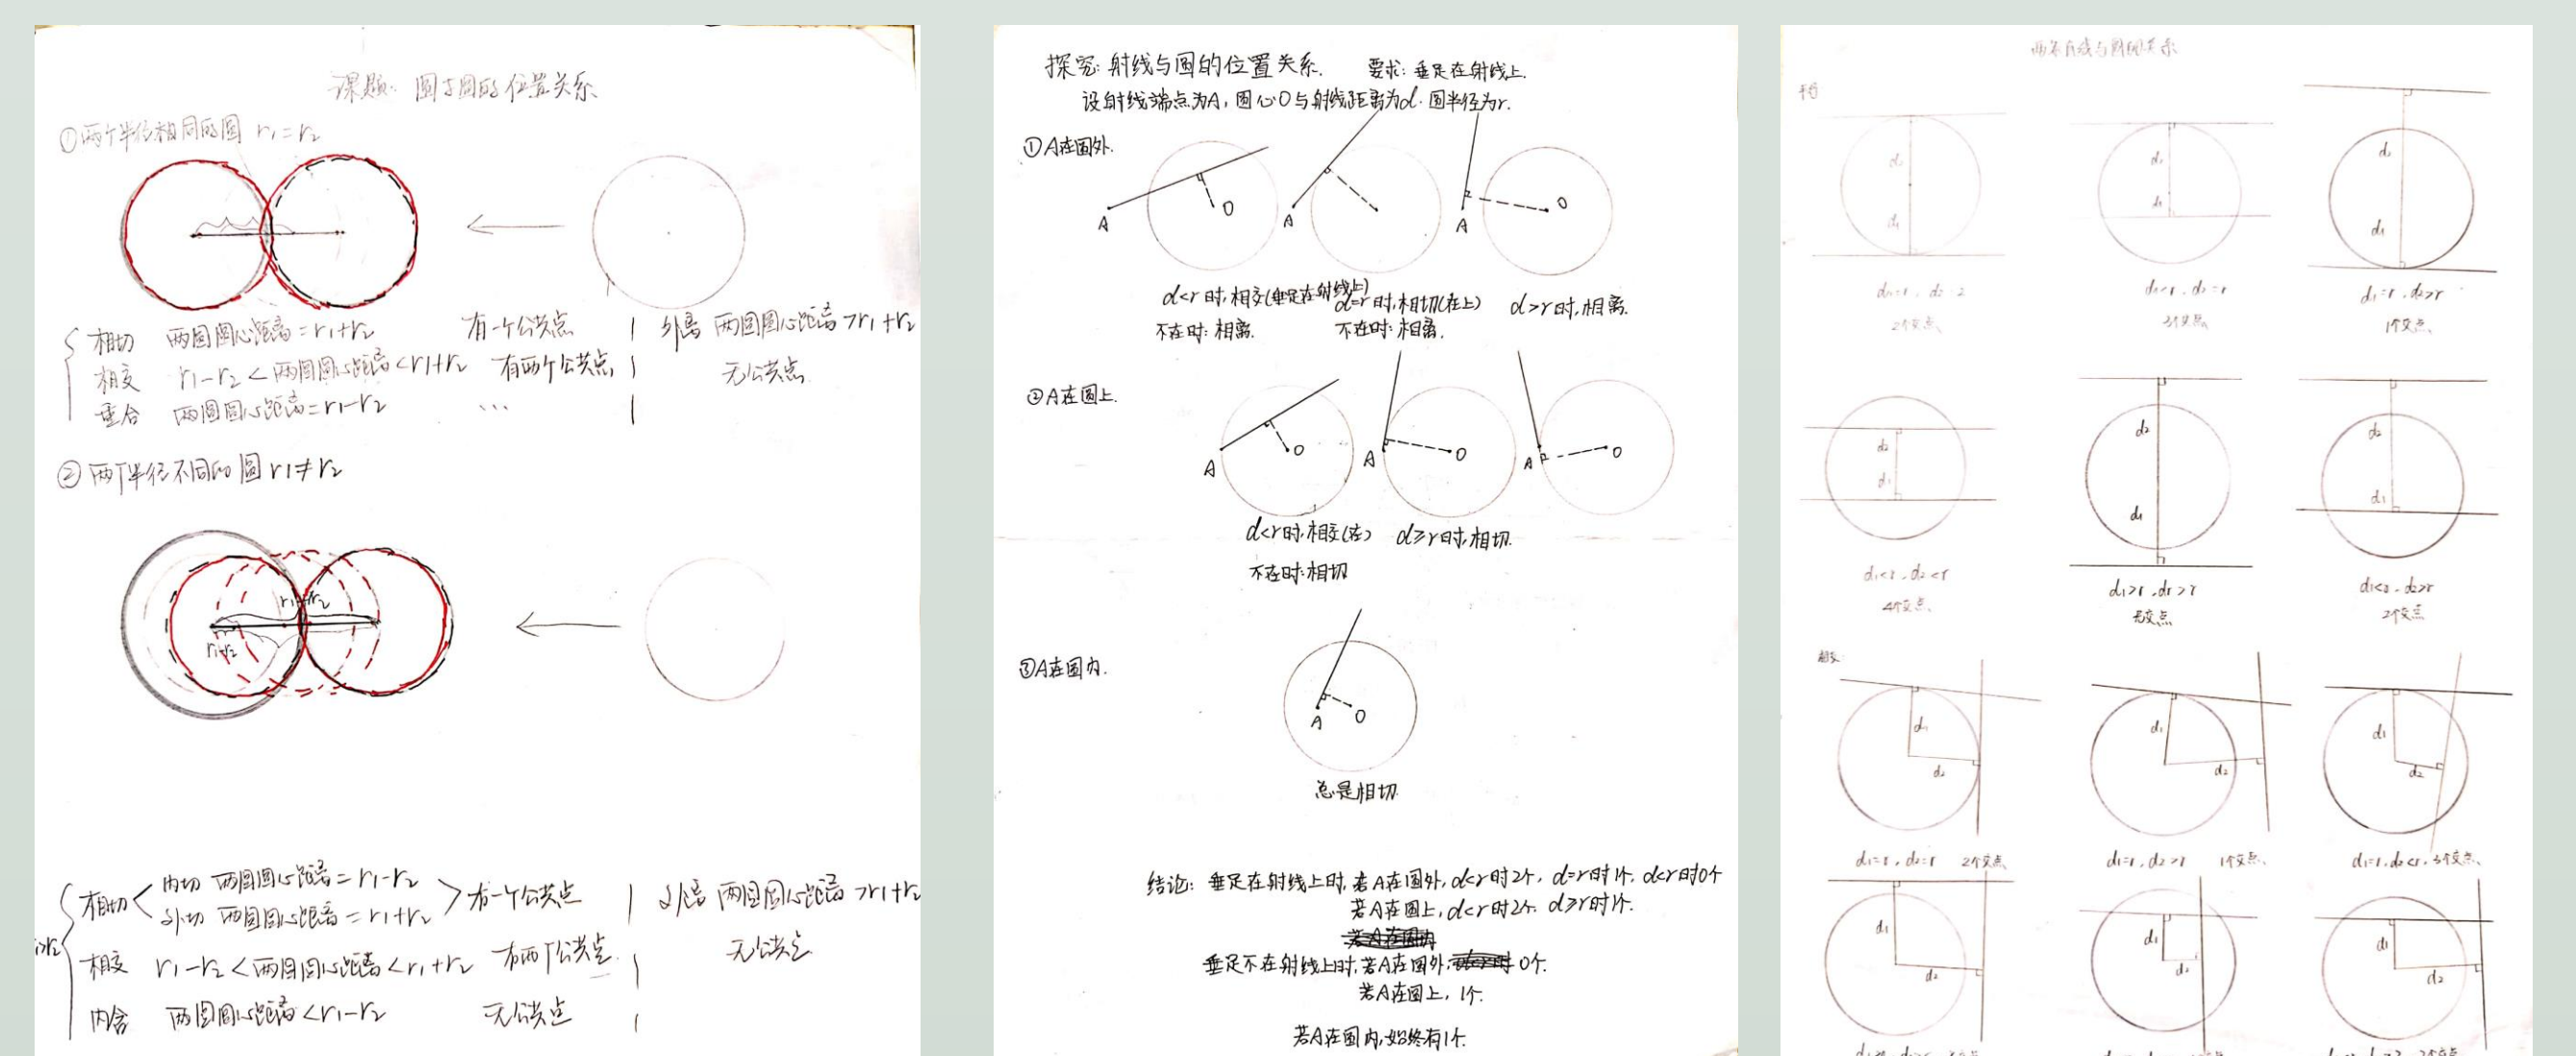 课题: 圆与圆的位置关系
①两个半径相同的圆 r₁=r₂
相切 两圆圆心距离=r₁+r₂ 有一个公共点
相交 r₁-r₂<两圆圆心距离<r₁+r₂ 有两个公共点
重合 两圆圆心距离=r₁-r₂ ...
外离 两圆圆心距离>r₁+r₂
无公共点
②两个半径不同的圆 r₁≠r₂
r₁+r₂
r₁-r₂
相切
内切 两圆圆心距离=r₁-r₂
外切 两圆圆心距离=r₁+r₂
有一个公共点
相交 r₁-r₂<两圆圆心距离<r₁+r₂ 有两个公共点
内含 两圆圆心距离<r₁-r₂ 无公共点
外离 两圆圆心距离>r₁+r₂
无公共点
探究: 射线与圆的位置关系. 要求: 垂足在射线上.
设射线端点为A, 圆心O与射线距离为d. 圆半径为r.
①A在圆外.
A O A A O
d<r时,相交(垂足在射线上)
不在时: 相离.
d=r时,相切(在上)
不在时: 相离.
d>r时,相离.
②A在圆上.
A O A O A O
d<r时,相交(在)
不在时:相切
d≥r时,相切.
③A在圆内.
A O
总是相切
结论: 垂足在射线上时, 若A在圆外, d<r时2个, d=r时1个. d<r时0个
若A在圆上, d<r时2个. d≥r时1个.
垂足不在射线上时,若A在圆外, 0个.
若A在圆上, 1个.
若A在圆内,始终有1个.
两条直线与圆的关系
平行
d₂ d₂ d₂
d₁ d₁ d₁
2个交点 3个交点 d₁=r, d₂>r
1个交点
d₂ d₂ d₂
d₁ d₁ d₁
d₁<r, d₂<r
4个交点
无交点
d₁<r, d₂>r
2个交点
相交
d₁ d₁ d₁
d₂ d₂ d₂
d₁=r, d₂=r 2个交点
d₁=r, d₂>r 1个交点
d₁=r, d₂<r, 3个交点
d₁ d₁ d₁
d₂ d₂ d₂